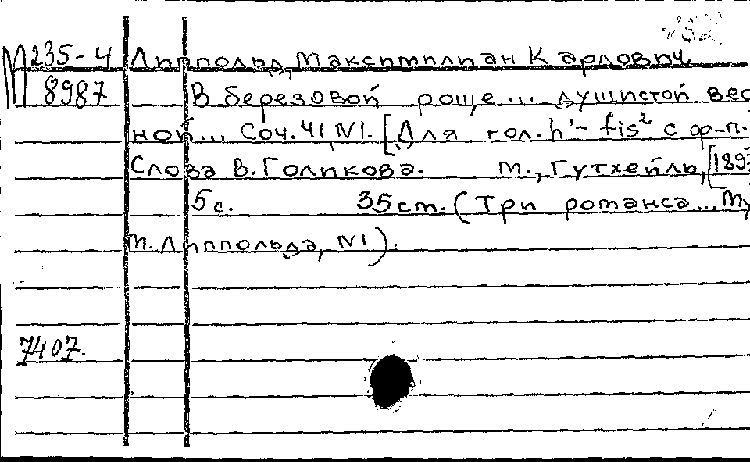 М 235-4 Липпольд, Максимилиан Карлович.
8987 В березовой роще... душистой вес
ной... Соч. 41, №1. [Для гол. h'- fis² с ф-п.
Слова В. Голикова. М., Гутхейль, [189
5 с. 35 см. (Три романса... М,
М. Липпольда, №1).
7407.